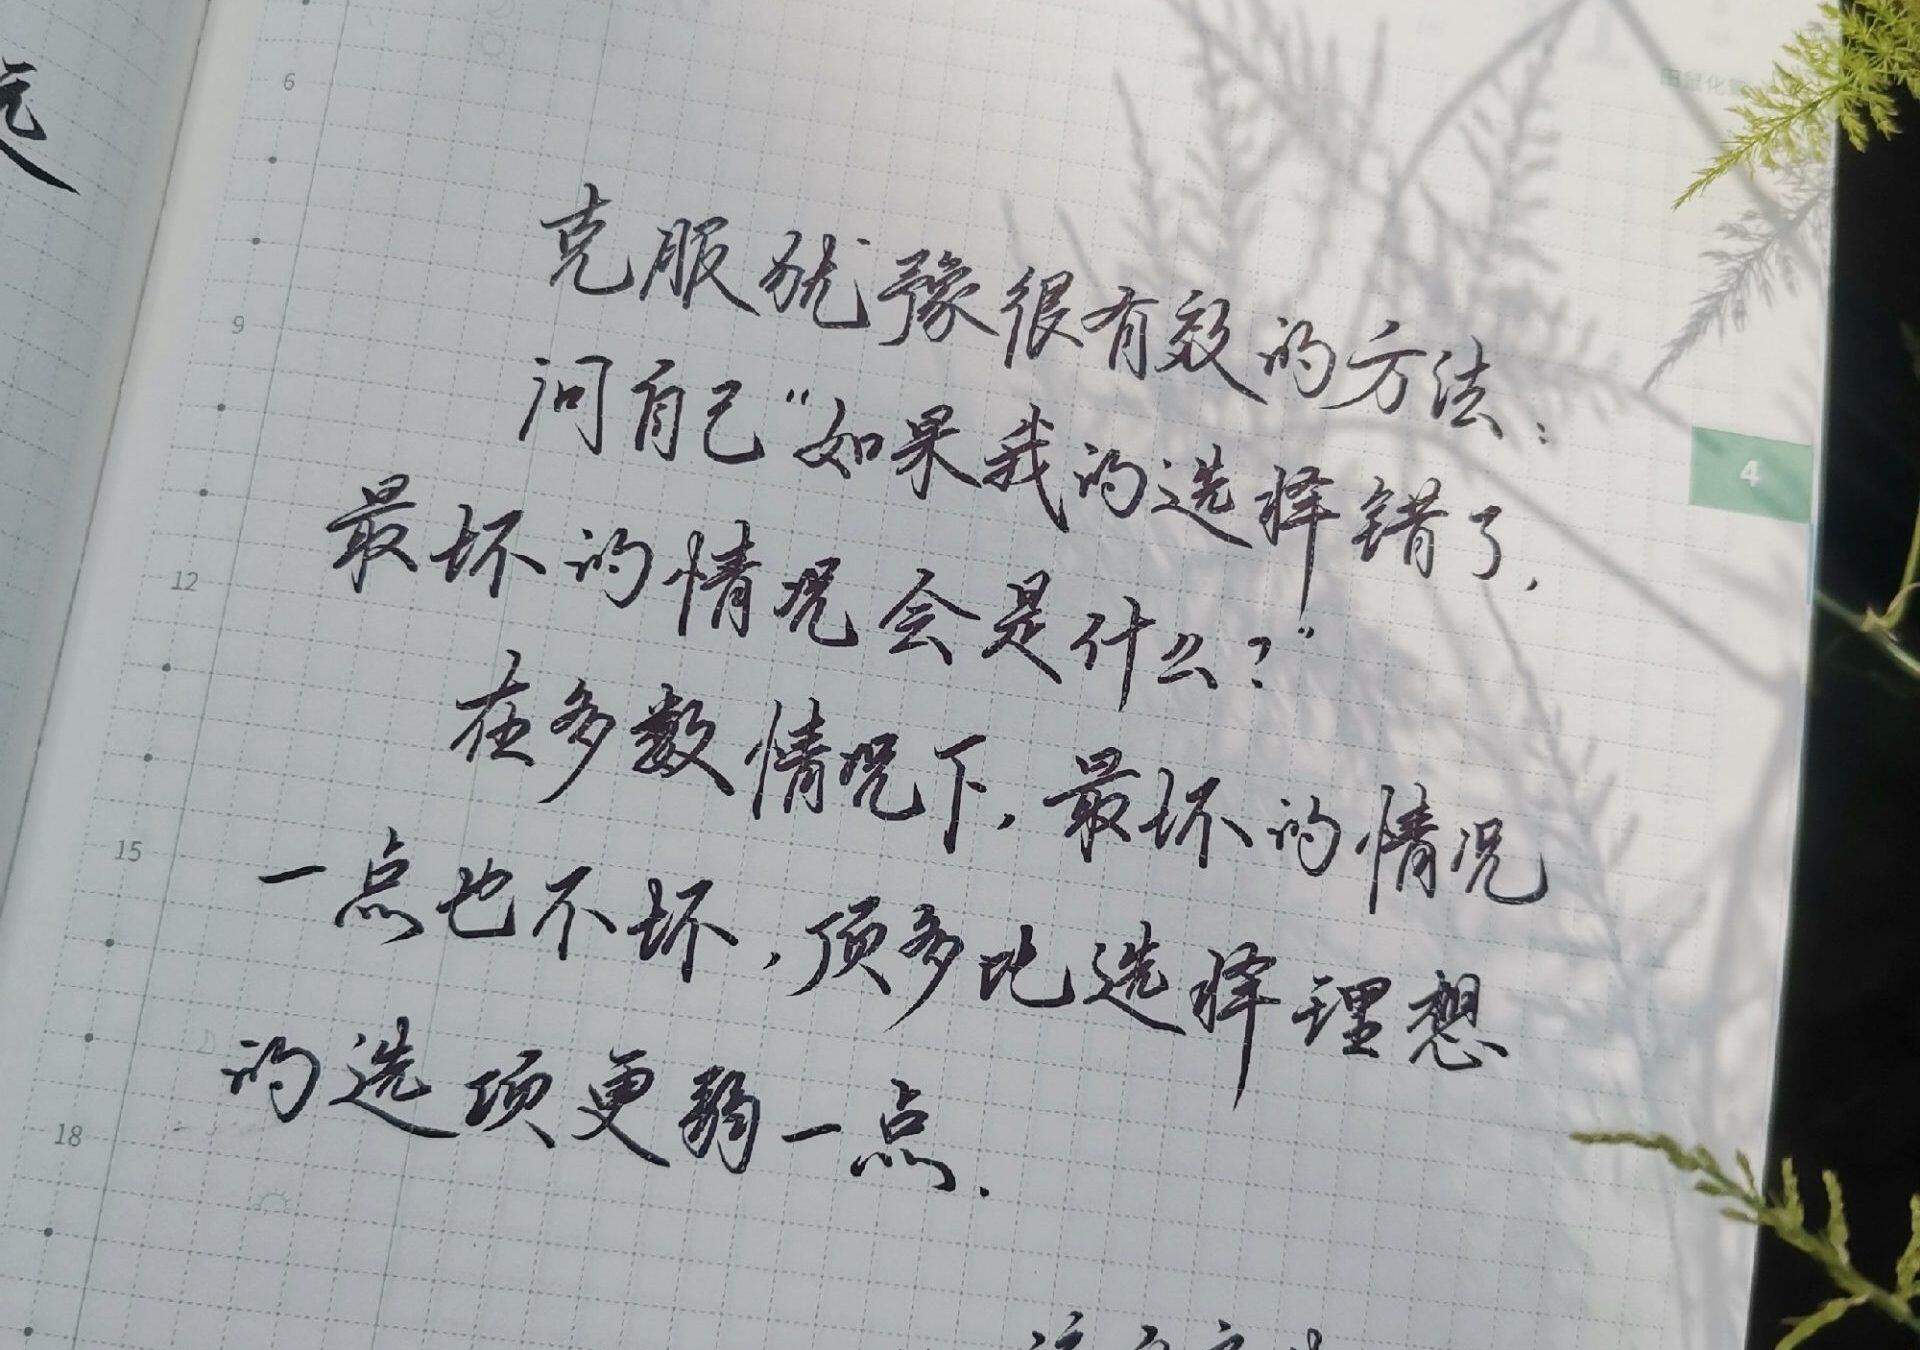 6
克服犹豫很有效的方法：
9
问自己“如果我的选择错了，
4
最坏的情况会是什么？”
12
在多数情况下，最坏的情况
15
一点也不坏，顶多比选择理想
的选项更弱一点.
18